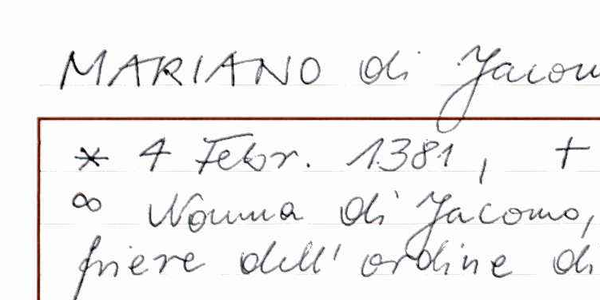 MARIANO di Jacom
* 4 Febr. 1381, +
∞ Nonna di Jacomo,
friere dell' ordine di